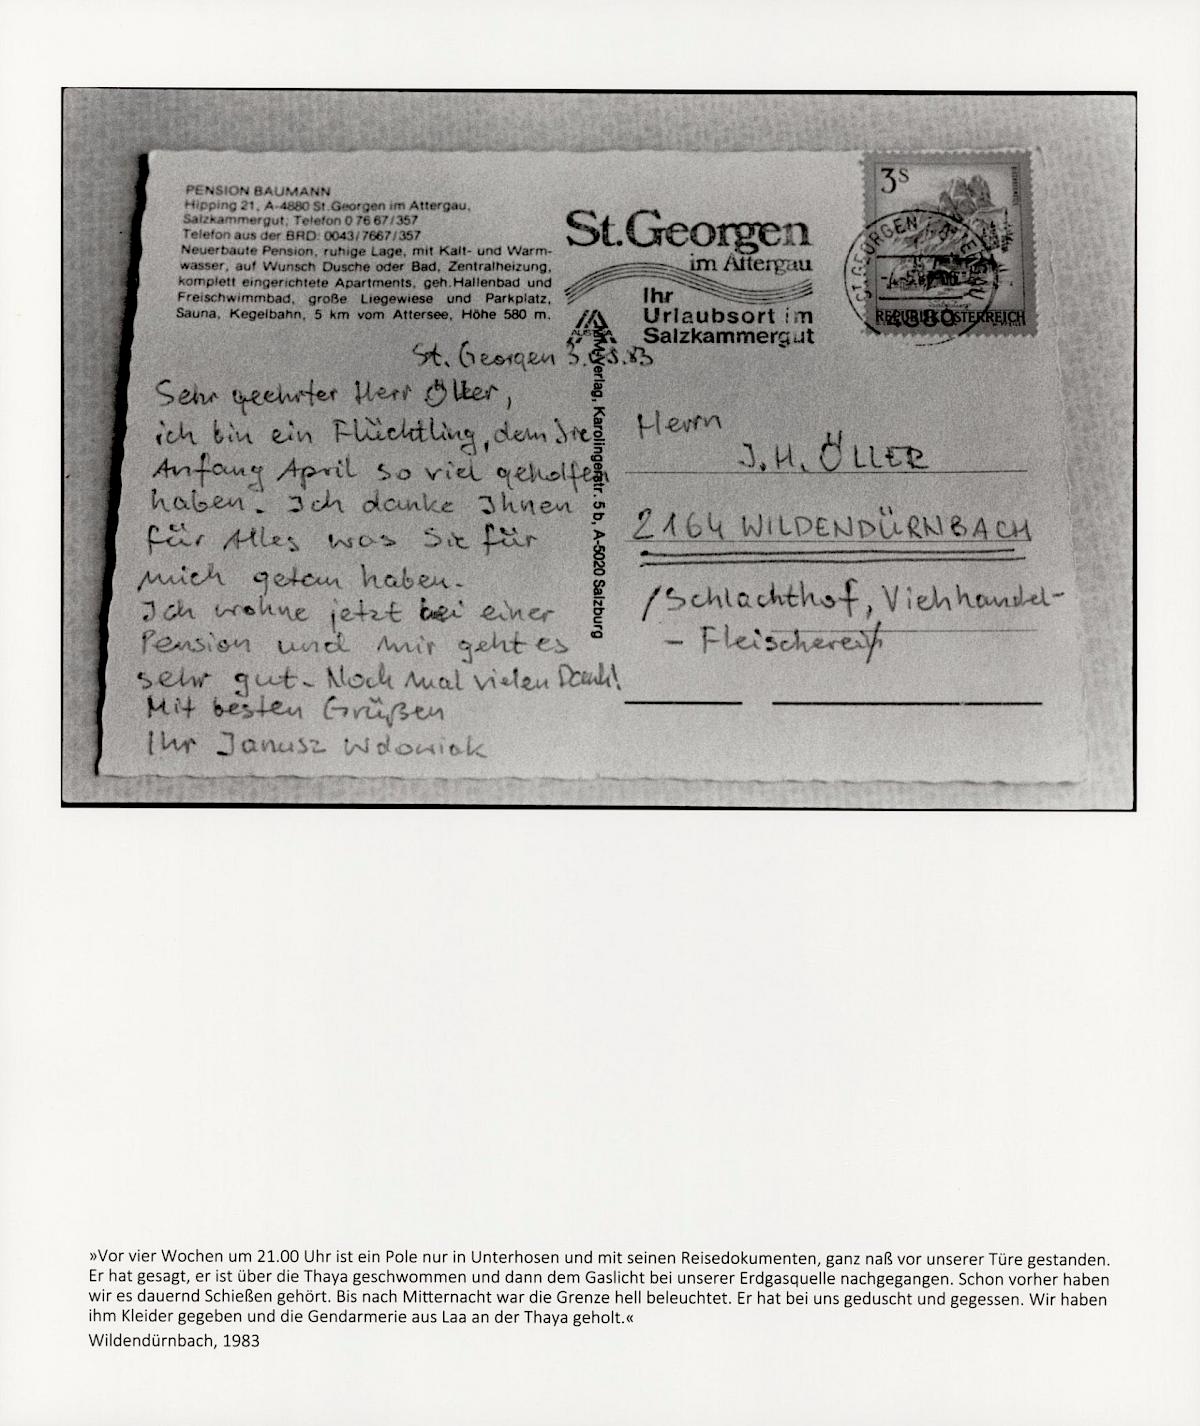 PENSION BAUMANN
Hipping 21, A-4880 St.Georgen im Attergau,
Salzkammergut; Telefon 0 76 67/357
Telefon aus der BRD: 0043/7667/357
Neuerbaute Pension, ruhige Lage, mit Kalt- und Warm-
wasser, auf Wunsch Dusche oder Bad, Zentralheizung,
komplett eingerichtete Apartments, geh. Hallenbad und
Freischwimmbad, große Liegewiese und Parkplatz,
Sauna, Kegelbahn, 5 km vom Attersee, Höhe 580 m.
St.Georgen
im Attergau
Ihr
Urlaubsort im
Salzkammergut
AUSTRIA
3S
REPUBLIK ÖSTERREICH
ST. GEORGEN I. ATTERGAU
4880
Verlag, Karolingerstr. 5b, A-5020 Salzburg
St. Georgen 3.05.83
Sehr geehrter Herr Öller,
ich bin ein Flüchtling, dem Sie
Anfang April so viel geholfen
haben. Ich danke Ihnen
für Alles was Sie für
mich getan haben.
Ich wohne jetzt bei einer
Pension und mir geht es
sehr gut. Noch mal vielen Dank!
Mit besten Grüßen
Ihr Janusz Wdowiak
Herrn
J.H. ÖLLER
2164 WILDENDÜRNBACH
/Schlachthof, Viehhandel-
- Fleischerei/
»Vor vier Wochen um 21.00 Uhr ist ein Pole nur in Unterhosen und mit seinen Reisedokumenten, ganz naß vor unserer Türe gestanden.
Er hat gesagt, er ist über die Thaya geschwommen und dann dem Gaslicht bei unserer Erdgasquelle nachgegangen. Schon vorher haben
wir es dauernd Schießen gehört. Bis nach Mitternacht war die Grenze hell beleuchtet. Er hat bei uns geduscht und gegessen. Wir haben
ihm Kleider gegeben und die Gendarmerie aus Laa an der Thaya geholt.«
Wildendürnbach, 1983